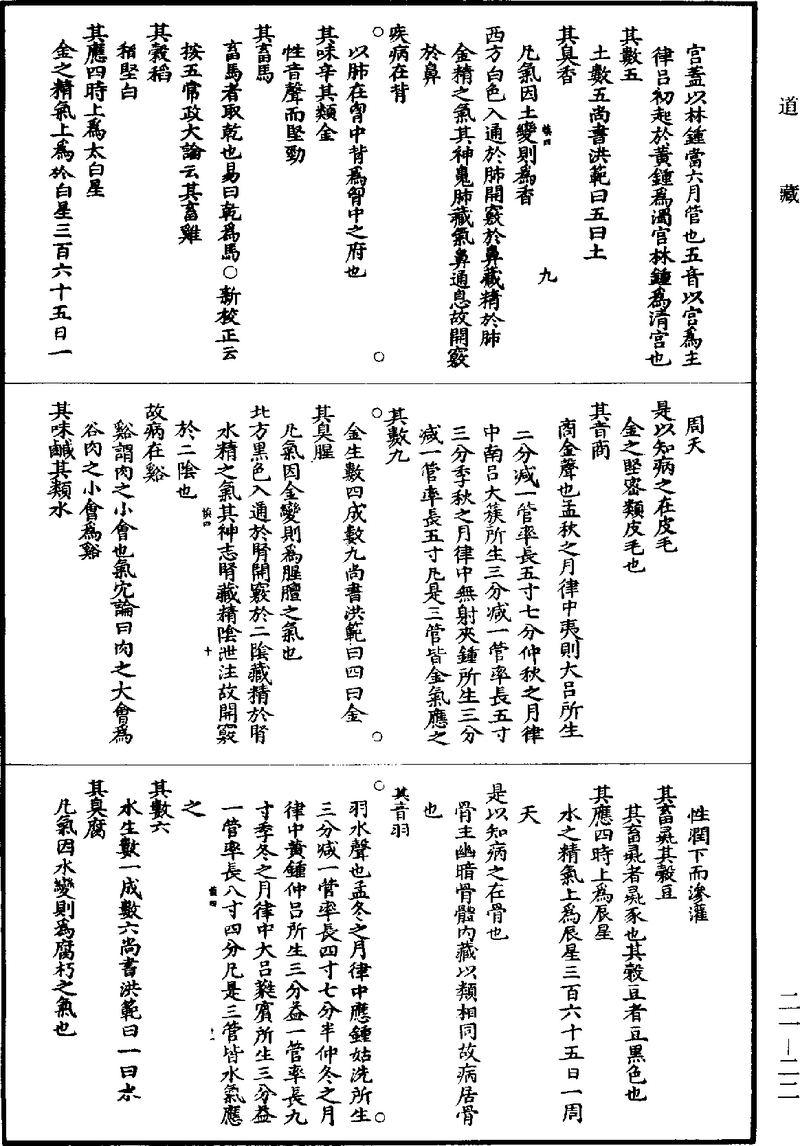 道藏
宫蓋以林鍾當六月管也五音以宫爲主
律吕初起於黃鍾爲濁宫林鍾爲清宫也
其數五
土數五尚書洪範曰五曰土
其臭香
凡氣因土變則爲香
慎四
九
西方白色入通於肺開竅於鼻藏精於肺
金精之氣其神魄肺藏氣鼻通息故開竅
於鼻
疾病在背
以肺在胷中背爲胷中之府也
其味辛其類金
性音聲而堅勁
其畜馬
畜馬者取乾也易曰乾爲馬○新校正云
按五常政大論云其畜雞
其穀稻
稻堅白
其應四時上爲太白星
金之精氣上爲於白星三百六十五日一
周天
是以知病之在皮毛
金之堅密類皮毛也
其音商
商金聲也孟秋之月律中夷則大吕所生
二分减一管率長五寸七分仲秋之月律
中南吕大簇所生三分减一管率長五寸
三分季秋之月律中無射夾鍾所生三分
减一管率長五寸凡是三管皆金氣應之
其數九
金生數四成數九尚書洪範曰四曰金
其臭腥
凡氣因金變則爲腥膻之氣也
北方黑色入通於腎開竅於二陰藏精於腎
水精之氣其神志腎藏精陰泄注故開竅
慎四
十
於二陰也
故病在谿
谿謂肉之小會也氣宂論曰肉之大會爲
谷肉之小會爲谿
其味鹹其類水
性潤下而滲灌
其畜彘其穀豆
其畜彘者彘豕也其穀豆者豆黑色也
其應四時上爲辰星
水之精氣上爲辰星三百六十五日一周
天
是以知病之在骨也
骨主幽暗骨體内藏以類相同故病居骨
也
其音羽
羽水聲也孟冬之月律中應鍾姑洗所生
三分减一管率長四寸七分半仲冬之月
律中黃鍾仲吕所生三分益一管率長九
寸季冬之月律中大吕蕤賓所生三分益
慎四
十一
一管率長八寸四分凡是三管皆水氣應
之
其數六
水生數一成數六尚書洪範曰一曰水
其臭腐
凡氣因水變則爲腐朽之氣也
二一—二二